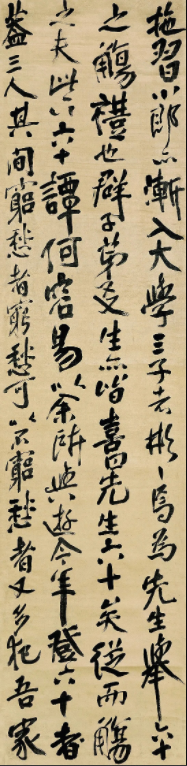 習小郎亦漸入大學三子者彬〻焉為先生舉六十
之觴禮也群子弟及生亦皆喜先生六十矣從而觴
之夫六十譚何容易以余所與遊今年登六十者
蓋三人其間窮愁者窮愁可以不窮愁者又多犯吾家